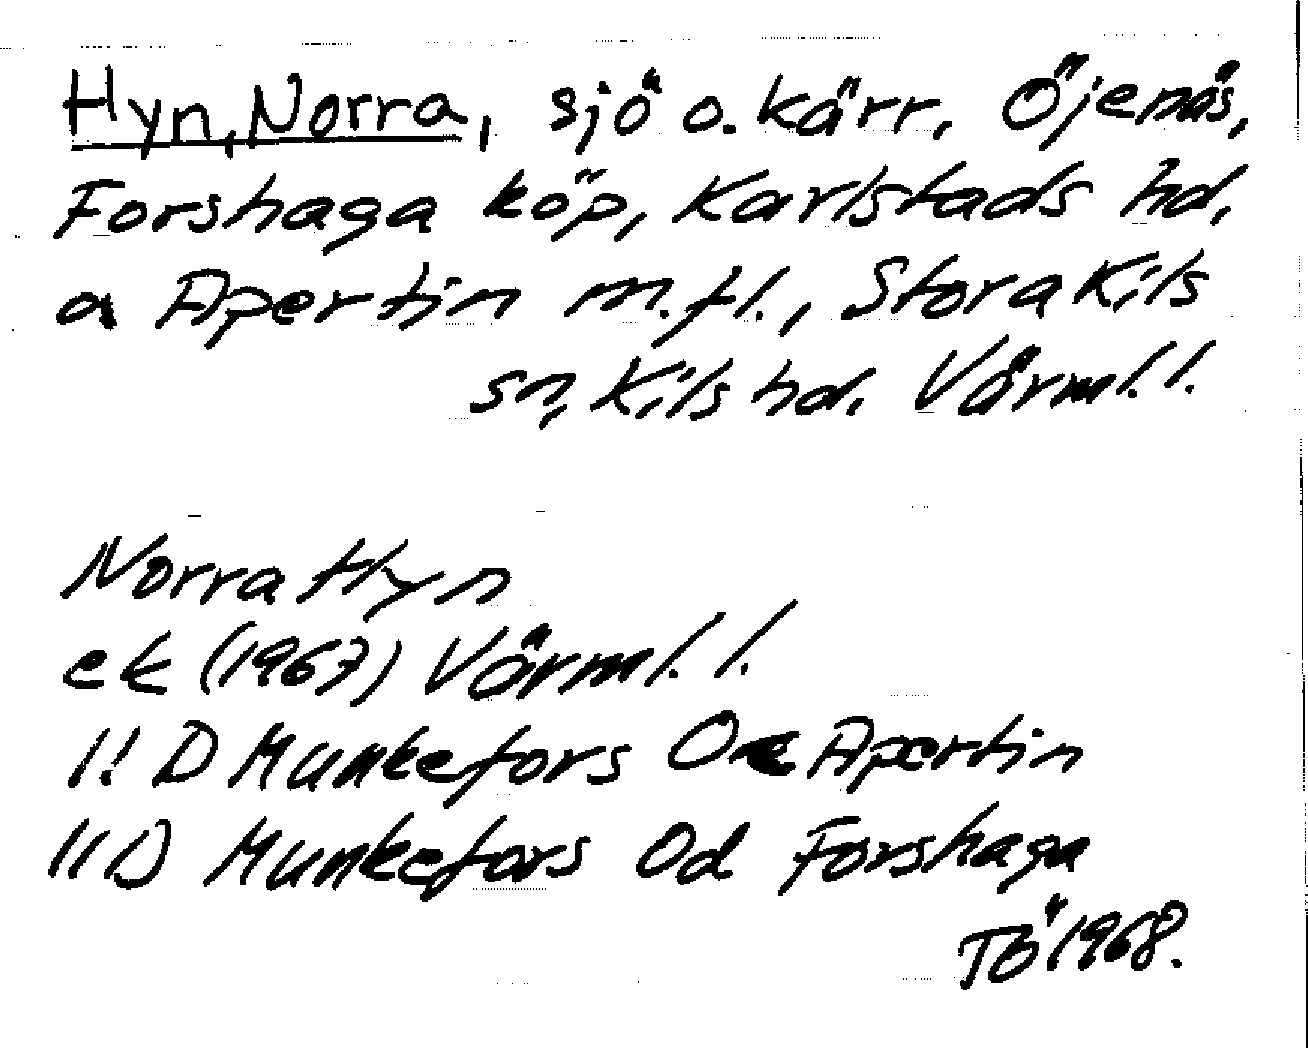 Hyn, Norra, sjö o. kärr, Öjenäs,
Forshaga köp, Karlstads hd,
a Apertin m.fl., Stora Kils
sn, Kils hd. Värml. l.
Norra Hyn
ek (1967) Värml. l.
11 D Munkefors Oc Apertin
11 D Munkefors Od Forshaga
TÖ 1968.